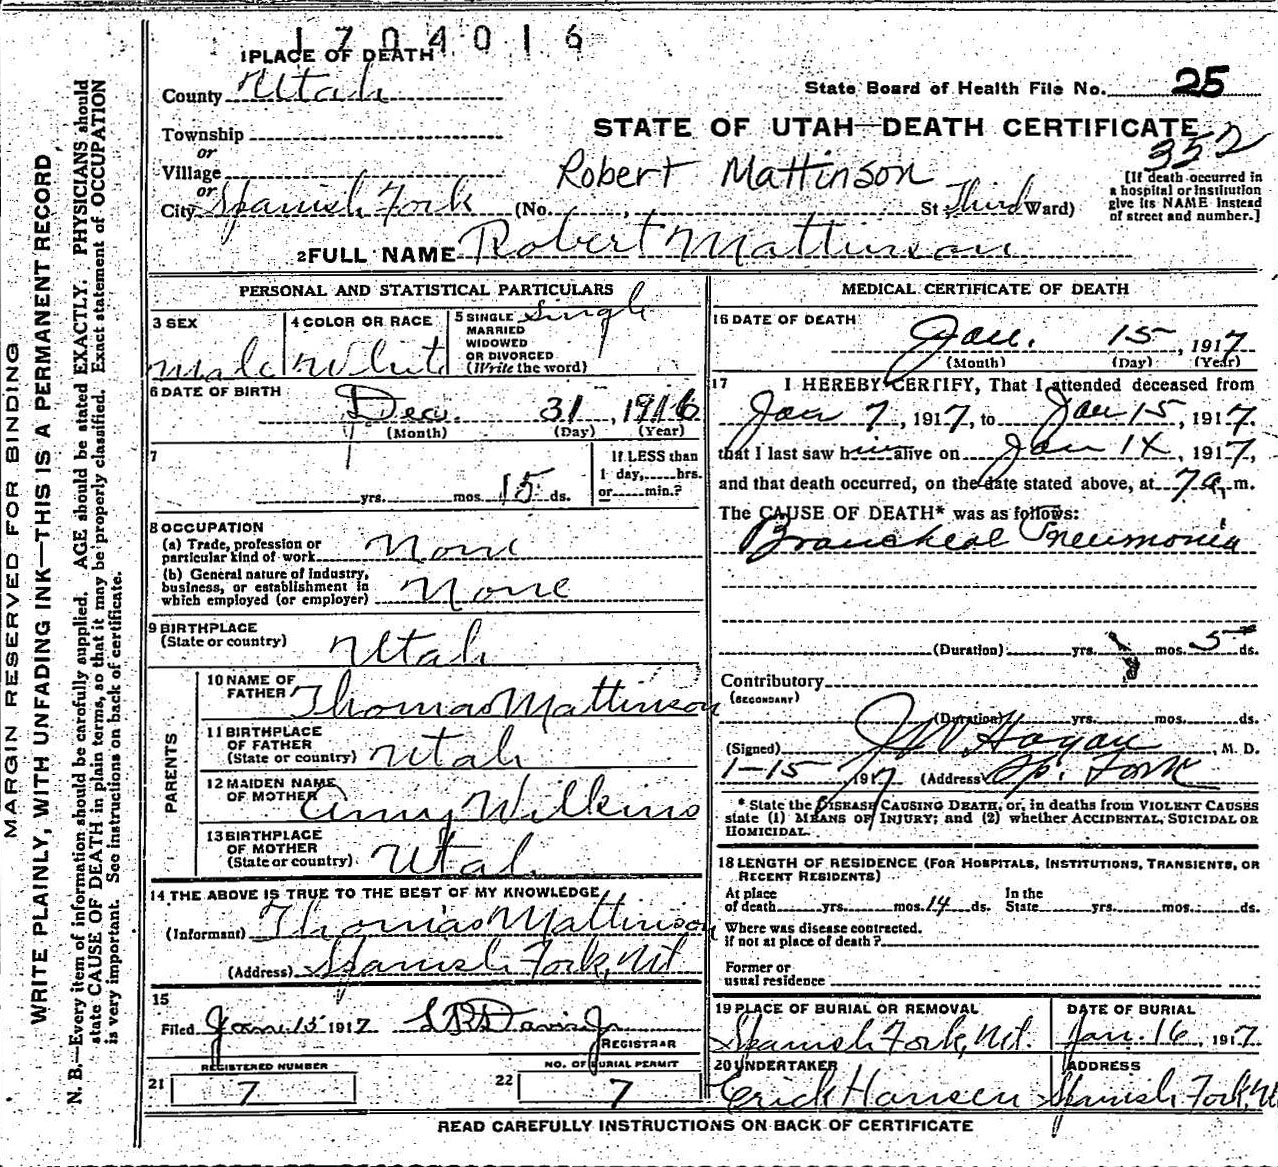 1704016
1 PLACE OF DEATH
County Utah
State Board of Health File No. 25
Township
STATE OF UTAH—DEATH CERTIFICATE
or
352
Village
Robert Mattinson
[If death occurred in a hospital or institution give its NAME instead of street and number.]
or
City Spanish Fork (No. , St Third Ward)
2 FULL NAME Robert Mattinson
PERSONAL AND STATISTICAL PARTICULARS
3 SEX
Male
4 COLOR OR RACE
White
5 SINGLE
MARRIED
WIDOWED
OR DIVORCED
(Write the word)
Single
6 DATE OF BIRTH
Dec. 31, 1916
(Month) (Day) (Year)
7
yrs. mos. 15 ds.
If LESS than
1 day, hrs.
or min.?
8 OCCUPATION
(a) Trade, profession or
particular kind of work None
(b) General nature of industry,
business, or establishment in
which employed (or employer) None
9 BIRTHPLACE
(State or country) Utah
PARENTS
10 NAME OF
FATHER Thomas Mattinson
11 BIRTHPLACE
OF FATHER
(State or country) Utah
12 MAIDEN NAME
OF MOTHER Amy Wilkins
13 BIRTHPLACE
OF MOTHER
(State or country) Utah
14 THE ABOVE IS TRUE TO THE BEST OF MY KNOWLEDGE
(Informant) Thomas Mattinson
(Address) Spanish Fork, Ut
15
Filed Jan. 15 1917
REGISTRAR
REGISTERED NUMBER
21 7
NO. OF BURIAL PERMIT
22 7
MEDICAL CERTIFICATE OF DEATH
16 DATE OF DEATH
Jan. 15, 1917
(Month) (Day) (Year)
17 I HEREBY CERTIFY, That I attended deceased from
Jan 7, 1917, to Jan 15, 1917.
that I last saw him alive on Jan 14, 1917,
and that death occurred, on the date stated above, at 7 a. m.
The CAUSE OF DEATH* was as follows:
Broncheal Pneumonia
(Duration) yrs. mos. 5 ds.
Contributory
(SECONDARY)
(Duration) yrs. mos. ds.
(Signed) J W Hagan, M. D.
1-15 1917 (Address) Sp. Fork
* State the DISEASE CAUSING DEATH, or, in deaths from VIOLENT CAUSES
state (1) MEANS OF INJURY; and (2) whether ACCIDENTAL, SUICIDAL OR
HOMICIDAL.
18 LENGTH OF RESIDENCE (FOR HOSPITALS, INSTITUTIONS, TRANSIENTS, OR
RECENT RESIDENTS)
At place
of death yrs. mos. 14 ds.
In the
State yrs. mos. ds.
Where was disease contracted,
if not at place of death?
Former or
usual residence
19 PLACE OF BURIAL OR REMOVAL
Spanish Fork, Ut.
DATE OF BURIAL
Jan. 16, 1917
20 UNDERTAKER
Erick Hansen
ADDRESS
Spanish Fork, Ut
READ CAREFULLY INSTRUCTIONS ON BACK OF CERTIFICATE
MARGIN RESERVED FOR BINDING
WRITE PLAINLY, WITH UNFADING INK—THIS IS A PERMANENT RECORD
N. B.—Every item of information should be carefully supplied. AGE should be stated EXACTLY. PHYSICIANS should
state CAUSE OF DEATH in plain terms, so that it may be properly classified. Exact statement of OCCUPATION
is very important. See instructions on back of certificate.